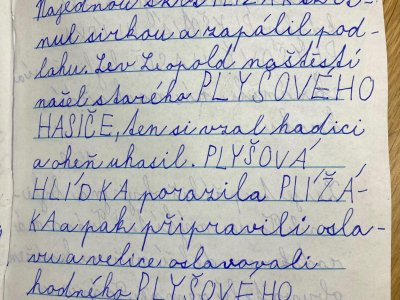 Najednou
nul sirkou a zapálil pod-
lahu. Lev Leopold naštěstí
našel starého PLYŠOVÉHO
HASIČE, ten si vzal hadici
a oheň uhasil. PLYŠOVÁ
HLÍDKA porazila PLÍŽÁ-
KA a pak připravili osla-
vu a velice oslavovali
hodného PLYŠOVÉHO